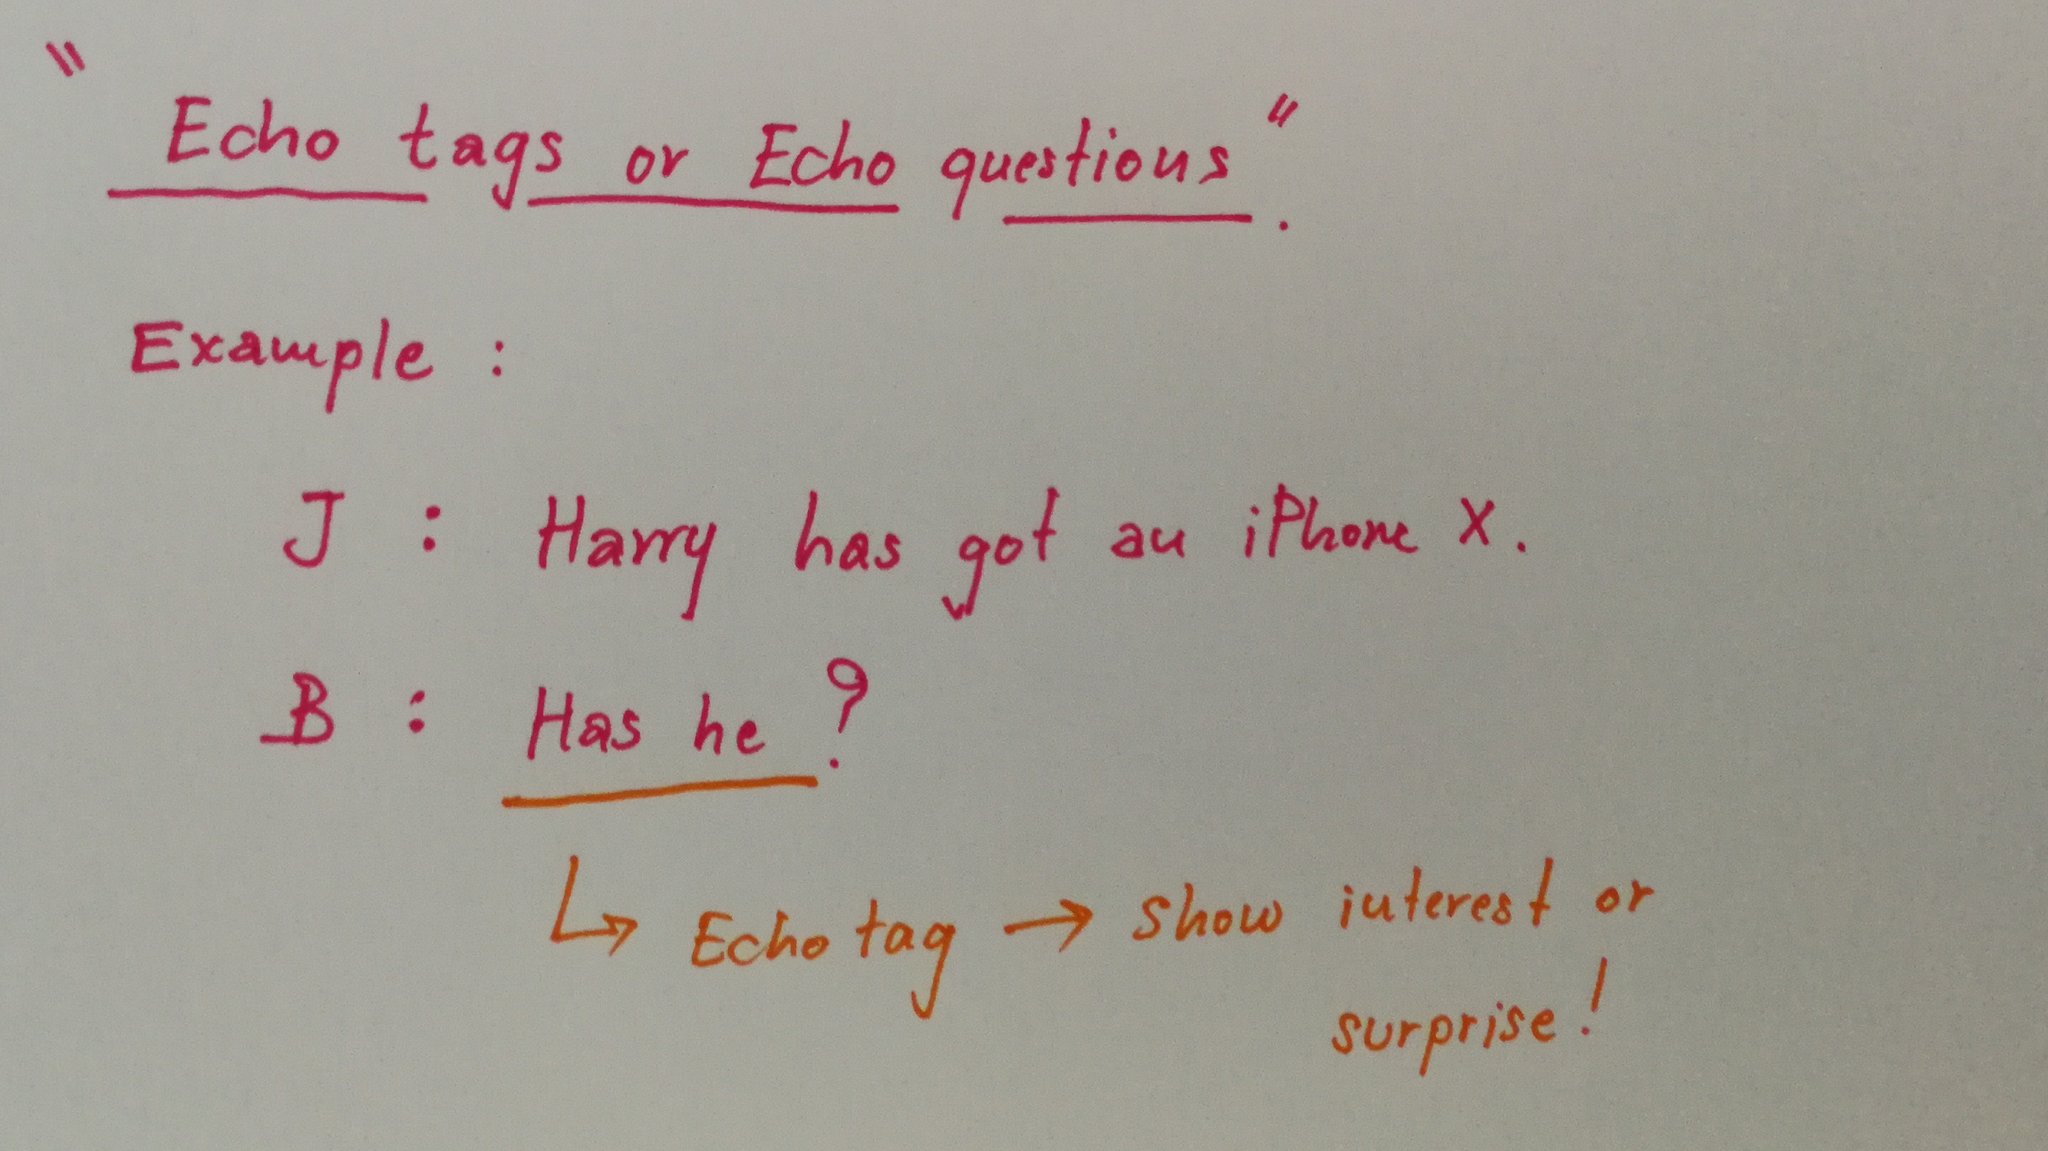 "Echo tags or Echo questions".
Example :
J : Harry has got an iPhone X.
B : Has he ?
↳ Echo tag → show interest or
surprise!